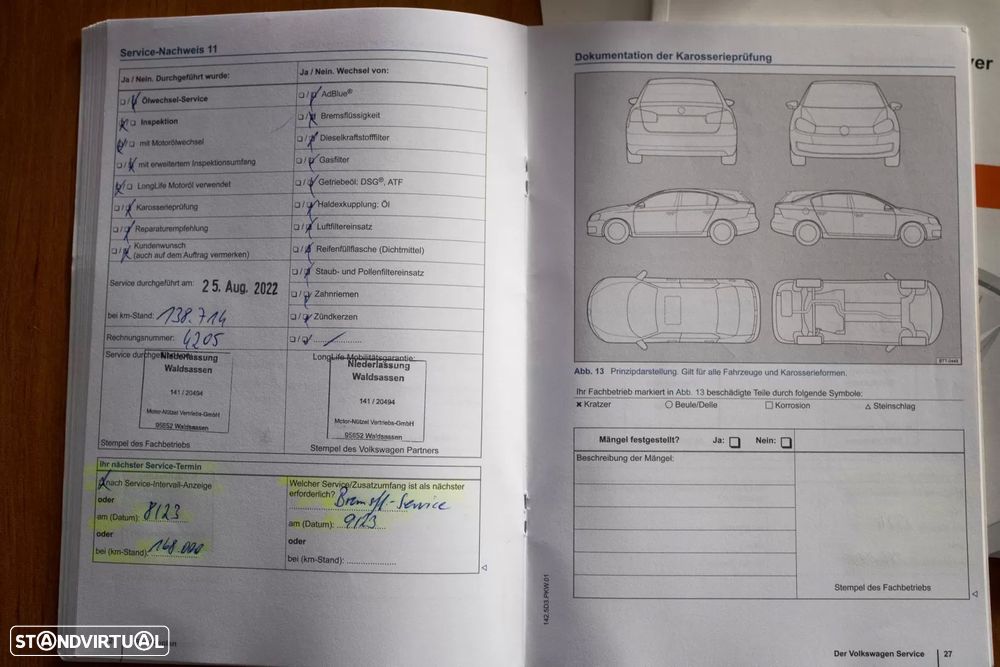 Service-Nachweis 11
Ja / Nein. Durchgeführt wurde:
❑ / ❑ Ölwechsel-Service
❑ / ❑ Inspektion
❑ / ❑ mit Motorölwechsel
❑ / ❑ mit erweitertem Inspektionsumfang
❑ / ❑ LongLife Motoröl verwendet
❑ / ❑ Karosserieprüfung
❑ / ❑ Reparaturempfehlung
❑ / ❑ Kundenwunsch
(auch auf dem Auftrag vermerken)
Service durchgeführt am: 25. Aug. 2022
bei km-Stand: 138.714
Rechnungsnummer: 4205
Service durchgeführt
Niederlassung
Waldsassen
141 / 20494
Motor-Nützel Vertriebs-GmbH
95652 Waldsassen
Stempel des Fachbetriebs
Ja / Nein. Wechsel von:
❑ / ❑ AdBlue®
❑ / ❑ Bremsflüssigkeit
❑ / ❑ Dieselkraftstofffilter
❑ / ❑ Gasfilter
❑ / ❑ Getriebeöl: DSG®, ATF
❑ / ❑ Haldexkupplung: Öl
❑ / ❑ Luftfiltereinsatz
❑ / ❑ Reifenfüllflasche (Dichtmittel)
❑ / ❑ Staub- und Pollenfiltereinsatz
❑ / ❑ Zahnriemen
❑ / ❑ Zündkerzen
❑ / ❑ ....................
LongLife Mobilitätsgarantie:
Niederlassung
Waldsassen
141 / 20494
Motor-Nützel Vertriebs-GmbH
95652 Waldsassen
Stempel des Volkswagen Partners
Ihr nächster Service-Termin
❑ nach Service-Intervall-Anzeige
oder
am (Datum): 8/23
oder
bei (km-Stand): 168.000
Welcher Service/Zusatzumfang ist als nächster
erforderlich? Bremsfl-Service
am (Datum): 9/23
oder
bei (km-Stand): ....................
◁
Dokumentation der Karosserieprüfung
BTT-0448
Abb. 13 Prinzipdarstellung. Gilt für alle Fahrzeuge und Karosserieformen.
Ihr Fachbetrieb markiert in Abb. 13 beschädigte Teile durch folgende Symbole:
✖ Kratzer ○ Beule/Delle □ Korrosion △ Steinschlag
Mängel festgestellt? Ja: ❑ Nein: ❑
Beschreibung der Mängel:
Stempel des Fachbetriebs
◁
142.5D3.PKW.01
Der Volkswagen Service 27
ver
STANDVIRTUAL